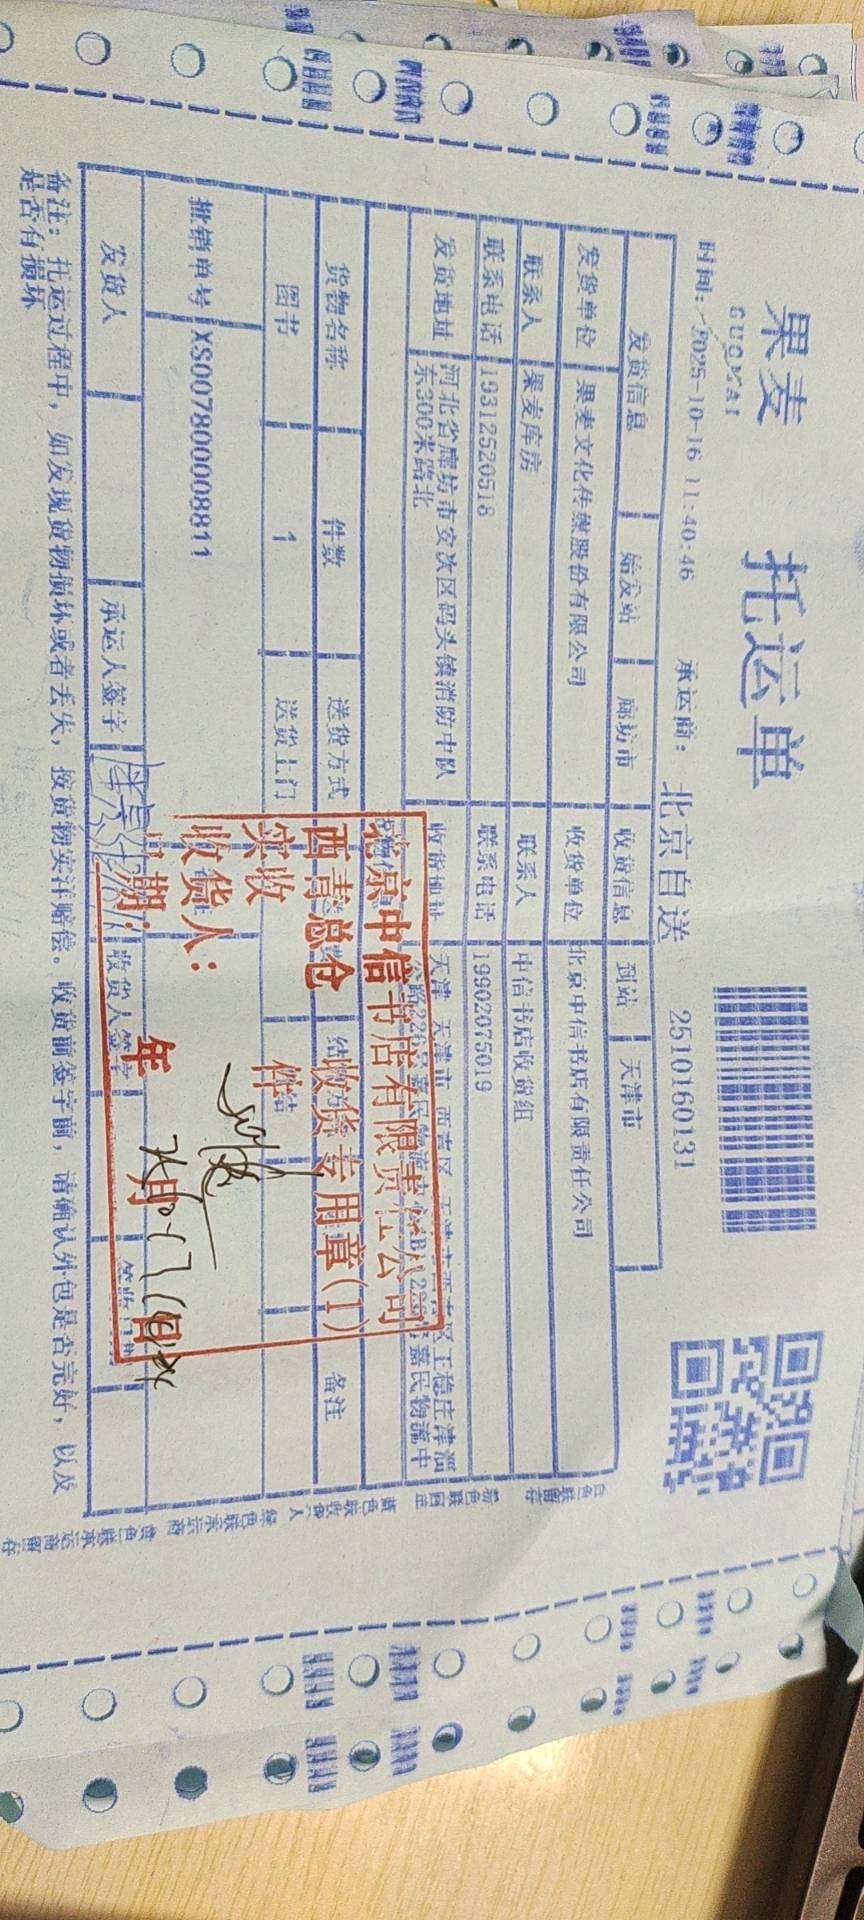 果麦
GUOMAI
托运单
时间: 2025-10-16 11:40:46 承运商: 北京自送 2510160131
发货信息 始发站 廊坊市 收货信息 到站 天津市
发货单位 果麦文化传媒股份有限公司 收货单位 北京中信书店有限责任公司
联系人 果麦库房 联系人 中信书店收货组
联系电话 19312520518 联系电话 19902075019
发货地址 河北省廊坊市安次区码头镇消防中队东300米路北 收货地址 天津 天津市 西青区
王稳庄津淄
嘉民物流中
货物名称 件数 送货方式 备注
图书 1 送货上门
批销单号 XS00780008811
发货人 承运人签字 收货人签字
备注: 托运过程中, 如发现货物损坏或者丢失, 按货物实洋赔偿。收货前签字前, 请确认外包是否完好, 以及
是否有损坏
北京中信书店有限责任公司
西青总仓 收货专用章(1)
实收 件
收货人:
日期: 年 月 日
白色联留存
粉色联回单
蓝色联收货人
绿色联承运商
黄色联承运商留存